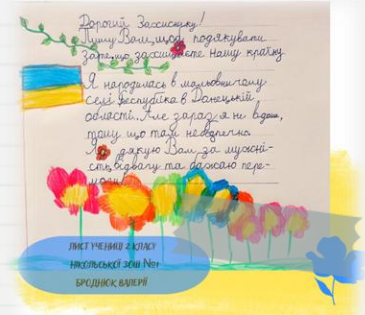 Дорогий Захиснику!
Пишу Вам, щоб подякувати
за те, що захищаєте нашу країну
Я народилась в мальовничому
селі Республіка в Донецькій
області. Але зараз я не вдома,
тому що там небезпечно
Я дякую Вам за мужні-
сть, відвагу та бажаю пере-
моги
ЛИСТ УЧЕНИЦІ 2 КЛАСУ
НІКОЛЬСЬКОЇ ЗОШ №1
БРОДНЮК ВАЛЕРІЇ